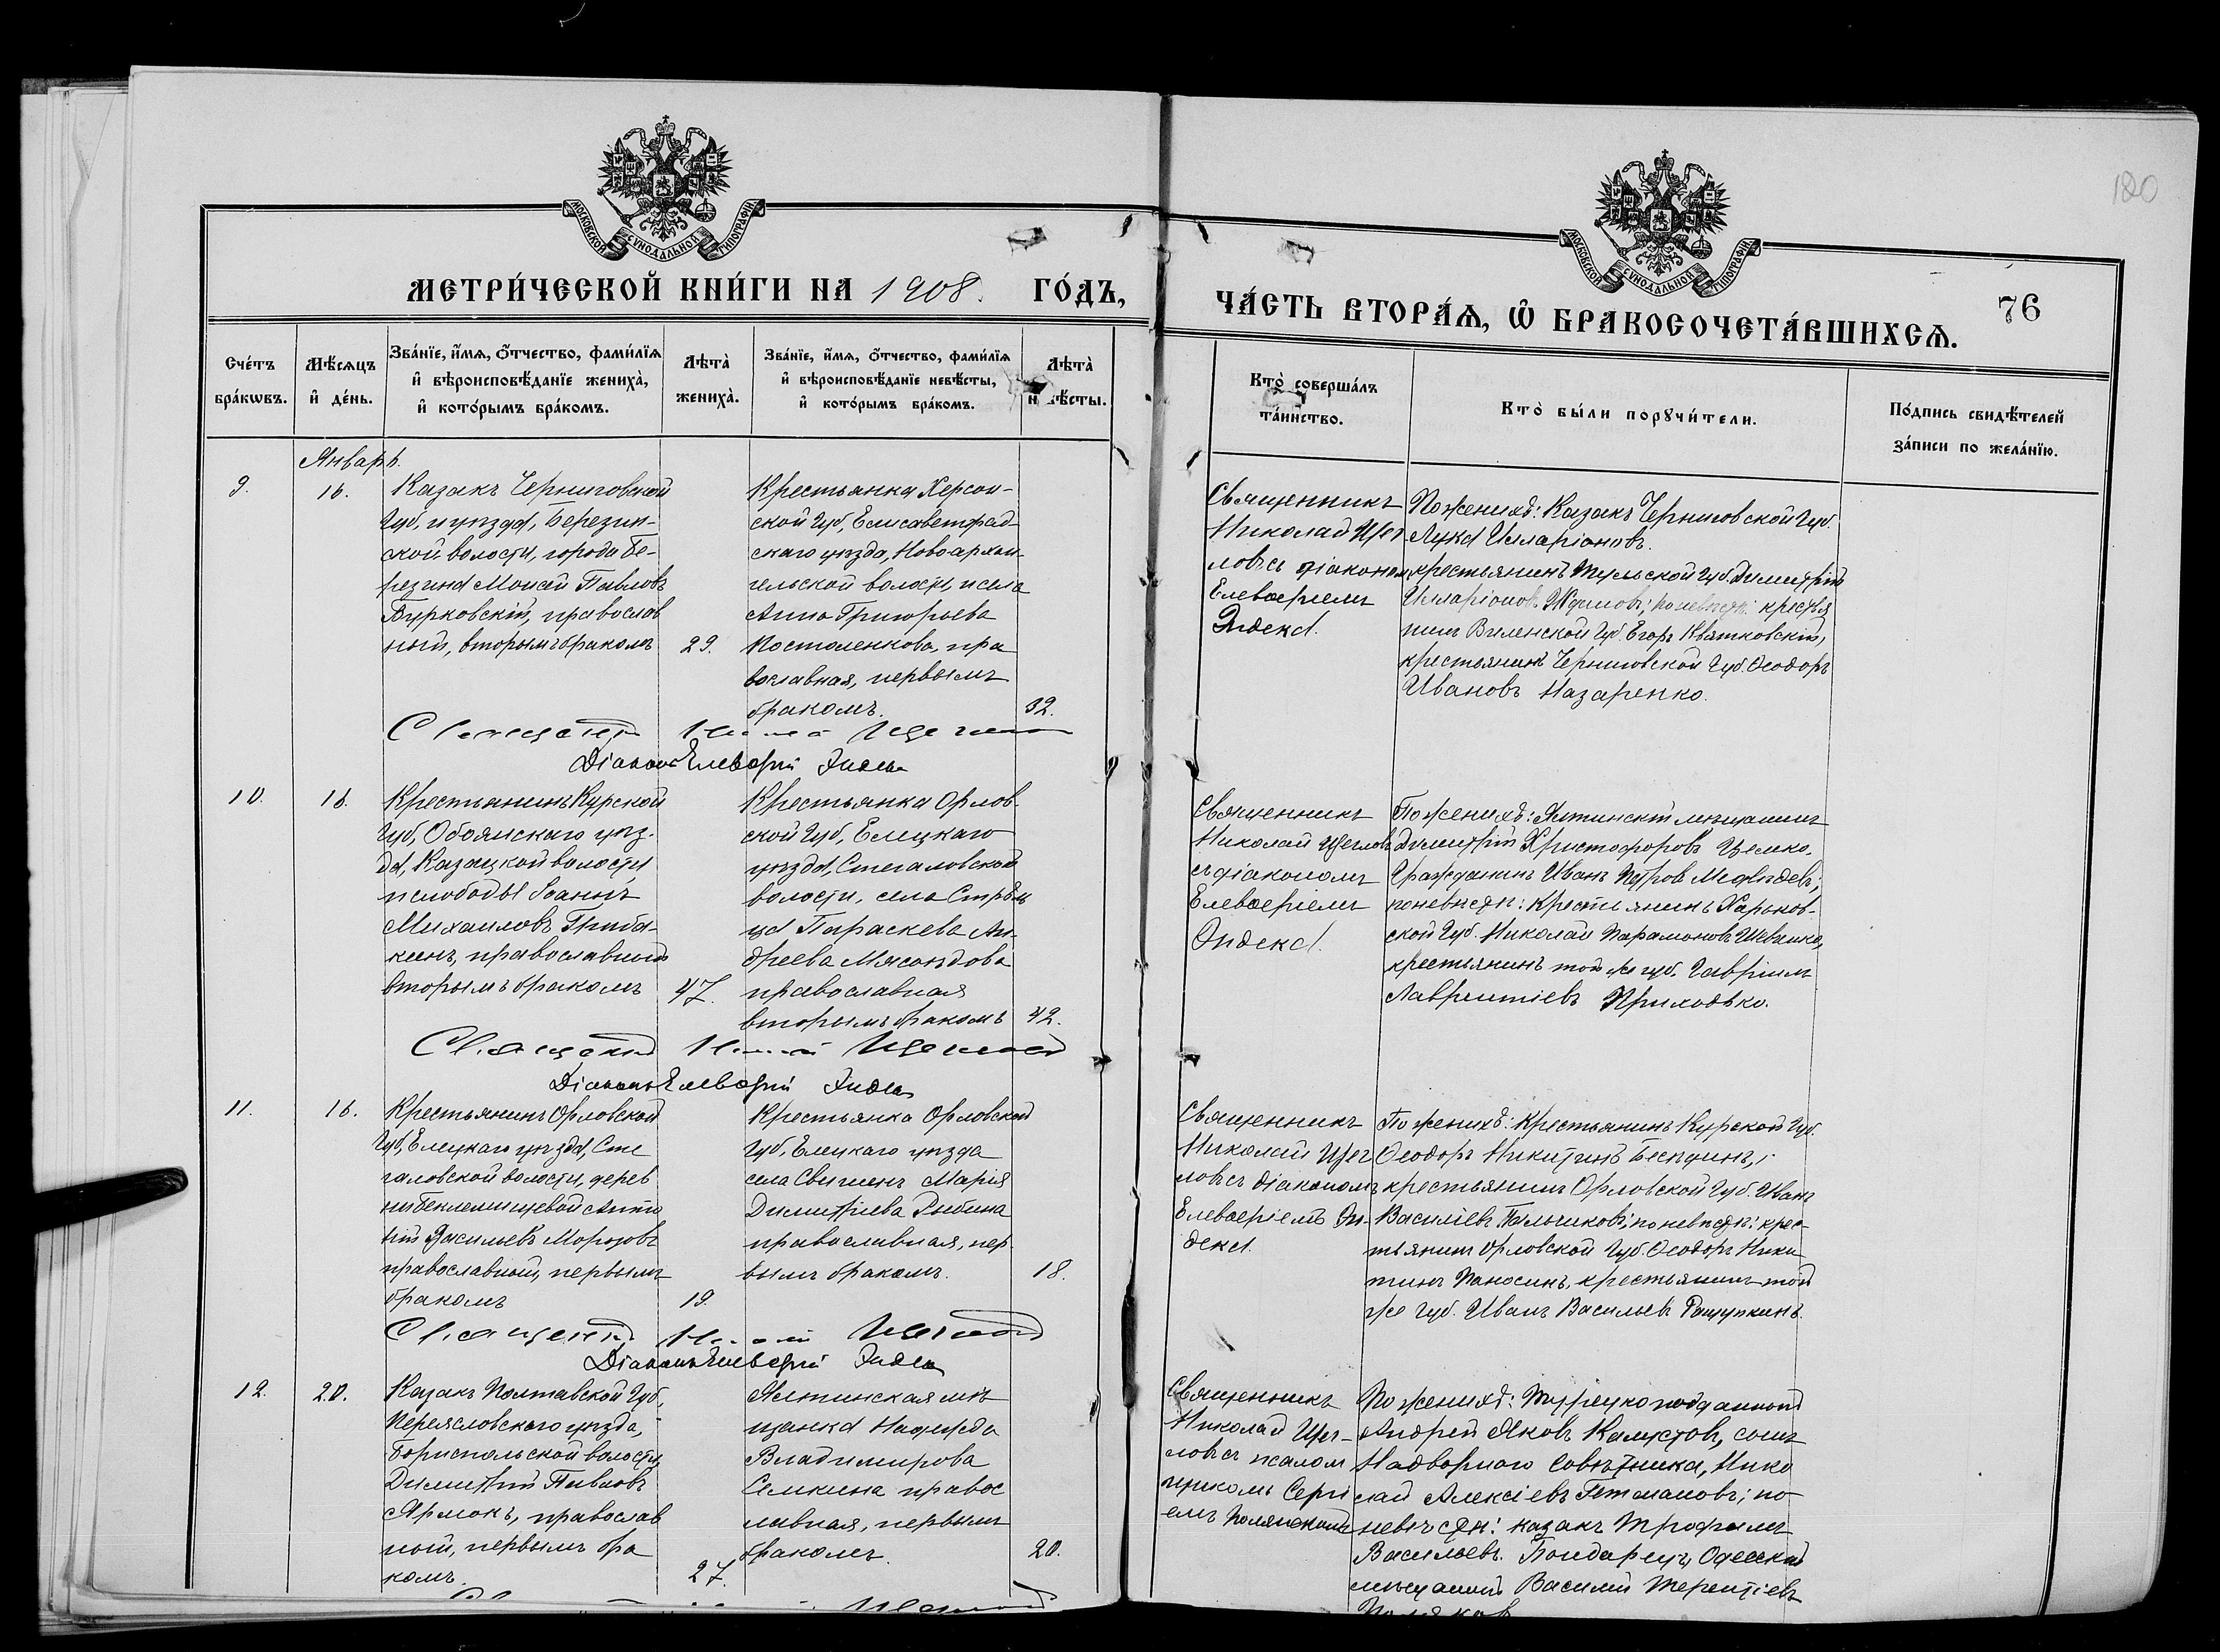 120
МОСКОВСКОЙ СѴНОДАЛЬНОЙ ТИПОГРАФІИ
МЕТРИ́ЧЕСКОЙ КНИ́ГИ НА 1908. ГО́ДЪ,
МОСКОВСКОЙ СѴНОДАЛЬНОЙ ТИПОГРАФІИ
ЧА́СТЬ ВТОРА́Я, Ѡ҆ БРАКОСОЧЕТА́ВШИХСЯ.
76
Сче́тъ
бра́кѡвъ.
Мѣ́сяцъ
и҆ де́нь.
Зва́нїе, и҆́мя, ѻ҆́тчество, фами́лїя
и҆ вѣроисповѣ́данїе жениха̀,
и҆ кото́рымъ бра́комъ.
Лѣта̀
жениха̀.
Зва́нїе, и҆́мя, ѻ҆́тчество, фами́лїя
и҆ вѣроисповѣ́данїе невѣ́сты,
и҆ кото́рымъ бра́комъ.
Лѣта̀
невѣ́сты.
Кто̀ соверша́лъ
та́инство.
Кто̀ бы́ли порꙋчи́тели.
По́дпись свидѣ́телей
за́писи по жела́нїю.
Январь.
9.
16.
Казакъ Черниговской
Губ, и уѣзда, Березин-
ской волости, города Бе-
резина Моисей Павловъ
Бурковскій, православ
ный, вторымъ бракомъ
29.
Крестьянка Херсон-
ской Губ, Елисаветград-
скаго уѣзда, Новоархан-
гельской волости, и села
Анна Григорьева
Костоленкова, пра
вославная, первымъ
бракомъ.
32.
Священникъ
Николай Щег-
ловъ съ діакономъ
Елевѳеріемъ
Эндека.
По женихѣ: Казакъ Черниговской Губ.
Лука Илларіоновъ.
крестьянинъ Тульской губ. Димитрій
Илларіоновъ; по невѣстѣ: кресть
нинъ Виленской Губ. Егоръ Квятковскій,
крестьянинъ Черниговской Губ. Ѳеодоръ
Ивановъ Назаренко.
Священникъ Николай Щегловъ
Діаконъ Елевѳерій Эндека
10.
16.
Крестьянинъ Курской
Губ, Обоянскаго уѣз-
да, Казацкой волости
и слободы Іоаннъ
Михаиловъ Гриба-
кинъ, православный
вторымъ бракомъ
47.
Крестьянка Орлов-
ской Губ, Елецкаго
уѣзда, Стегаловской
волости, села Стрѣль
ца Параскева Ан-
дреева Мясоѣдова
православная
вторымъ бракомъ
42.
Священникъ
Николай Щегловъ
съ діакономъ
Елевѳеріемъ
Эндека.
По женихѣ: Ялтинскій мѣщанинъ
Димитрій Христофоровъ Цемко.
Гражданинъ Иванъ Петровъ Медвѣдевъ;
по невѣстѣ: крестьянинъ Харьков-
ской Губ. Николай Парамоновъ Шевченко,
крестьянинъ той же губ. Гавріилъ
Лаврентіевъ Приходько.
Священникъ Николай Щегловъ
Діаконъ Елевѳерій Эндека
11.
16.
Крестьянинъ Орловской
Губ, Елецкаго уѣзда, Сте
галовской волости, дерев
ни Беклемищевой Анто
ній Васильевъ Морозовъ
православный, первымъ
бракомъ
19.
Крестьянка Орловской
Губ, Елецкаго уѣзда
села Свишенъ Марія
Димитріева Рыбина
православная, пер-
вымъ бракомъ.
18.
Священникъ
Николай Щег
ловъ съ діакономъ
Елевѳеріемъ Эн-
дека.
По женихѣ: крестьянинъ Курской Губ.
Ѳеодоръ Никитинъ
крестьянинъ Орловской Губ. Иванъ
Василіевъ Пальчиковъ; по невѣстѣ: крес-
тьянинъ Орловской Губ. Ѳеодоръ Ники-
тинъ Паносинъ, крестьянинъ той
же губ. Иванъ Васильевъ Ращупкинъ.
Священникъ Николай Щегловъ
Діаконъ Елевѳерій Эндека
12.
20.
Казакъ Полтавской Губ,
Переясловскаго уѣзда,
Бориспольской волости
Димитрій Павловъ
Ярмокъ, православ
ный, первымъ бра
комъ.
27.
Ялтинская мѣ-
щанка Надежда
Владимирова
Семкина правос
лавная, первымъ
бракомъ.
20.
Священникъ
Николай Щег-
ловъ съ псалом
щикомъ Сергі
емъ Полянскимъ
По женихѣ: Турецкоподданный
Андрей Яковъ сынъ
Надворнаго Совѣтника, Нико
лай Алексіевъ Гетмановъ; по
невѣстѣ: казакъ Трофимъ
Васильевъ Бондарецъ, Одесскій
мѣщанинъ Василій Терентіевъ
Поляковъ
Щегловъ